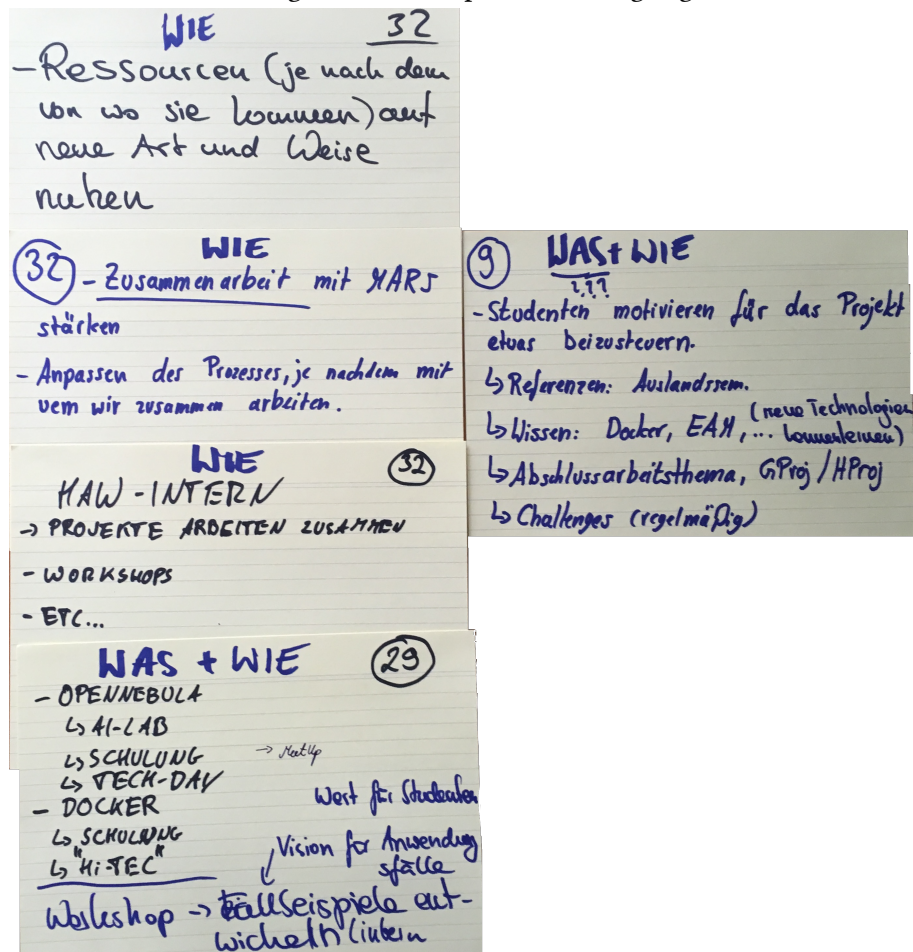 WIE 32
-Ressourcen (je nach dem
von wo sie kommen) auf
neue Art und Weise
nutzen
WIE
32 - Zusammenarbeit mit MARS
stärken
- Anpassen des Prozesses, je nachdem mit
wem wir zusammen arbeiten.
WIE 32
HAW-INTERN
-> PROJEKTE ARBEITEN ZUSAMMEN
- WORKSHOPS
- ETC...
WAS + WIE 29
- OPENNEBULA
↳ AI-LAB
↳ SCHULUNG -> MeetUp
↳ TECH-DAY
- DOCKER
↳ SCHULUNG
↳ "Hi-TEC"
Wert für Studenten
Vision for Anwendung
sfälle
Workshop -> Fallbeispiele ent-
wickeln (intern
9 WAS + WIE
???
- Studenten motivieren für das Projekt
etwas beizusteuern.
↳ Referenzen: Auslandssem.
↳ Wissen: Docker, EAM, ... (neue Technologien
kennenlernen)
↳ Abschlussarbeitsthema, GProj / HProj
↳ Challenges (regelmäßig)